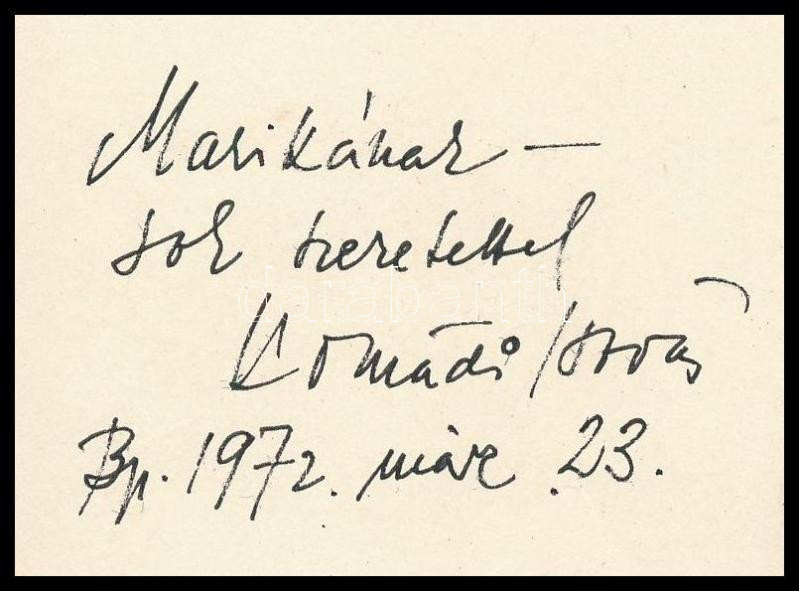 Marikának —
sok szeretettel
darabanth
Komádi István
Bp. 1972. márc. 23.